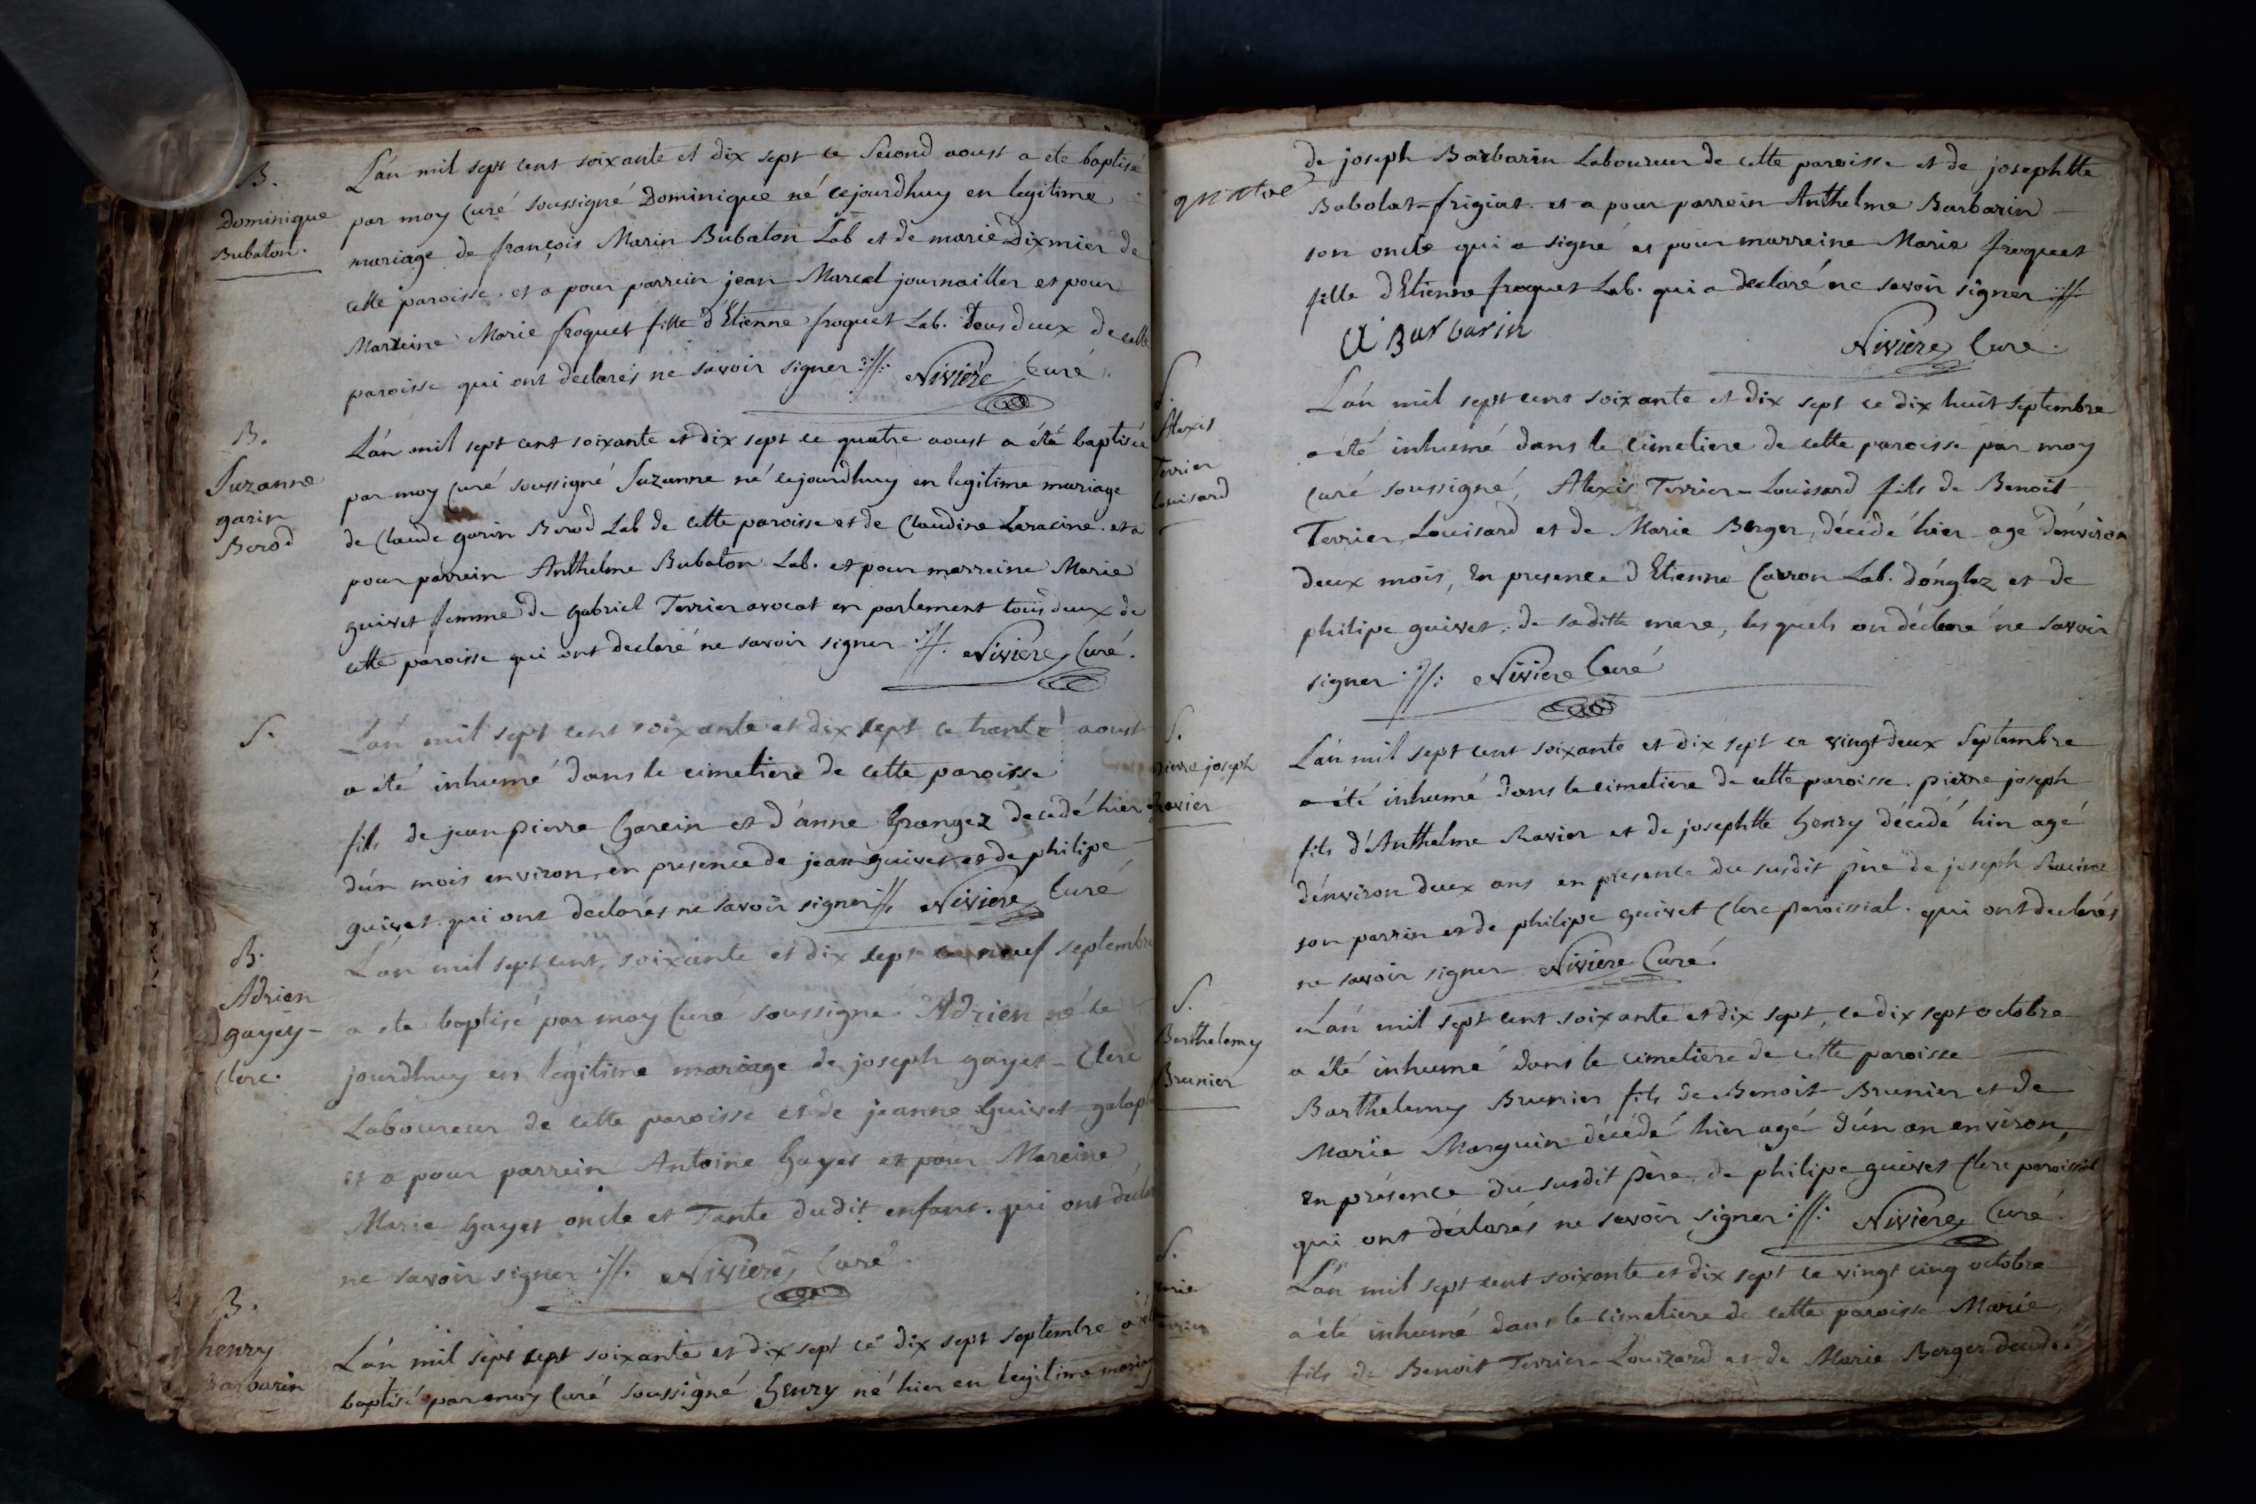 B.
Dominique
Bubaton.
L'an mil sept cent soixante et dix sept ce second aoust a eté baptisé
par moy curé soussigné Dominique né cejourdhuy en legitime
mariage de françois Marin Bubaton Lab et de marie Dixmier de
cette paroisse. et a pour parrein jean Marcel journaillier et pour
Marreine Marie froquet fille d'Etienne froquet Lab. tous deux de cette
paroisse qui ont declarés ne savoir signer Nivière Curé
B.
Suzanne
garin
Berod
L'an mil sept cent soixante et dix sept ce quatre aoust a été baptisée
par moy curé soussigné Suzanne né cejourdhuy en legitime mariage
de Claude garin Berod Lab de cette paroisse et de Claudine Laracine. et a
pour parrein Anthelme Bubaton Lab. et pour marreine Marie
guivet femme de gabriel Terrier avocat en parlement tous deux de
cette paroisse qui ont declaré ne savoir signer Nivière Curé.
S.
L'an mil sept cent soixante et dix sept ce trente aoust
a été inhumé dans le cimetiere de cette paroisse
fils de jean pierre et d'anne Grangez decedé hier agé
d'un mois environ, en presence de jean guivet et de philipe
guivet qui ont declarés ne savoir signer Nivière Curé
B.
Adrien
gayey-
Clerc.
L'an mil sept cent soixante et dix sept ce neuf septembre
a ete baptisé par moy Curé soussigné Adrien né ce
jourdhuy en legitime mariage de joseph gayet-Clerc
Laboureur de cette paroisse et de jeanne Guivet-
et a pour parrein Antoine Gayet et pour Mareine
Marie Gayet oncle et Tante dudit enfant. qui ont
ne savoir signer Nivière Curé.
B.
henry
Barbarin
L'an mil sept cent soixante et dix sept ce dix sept septembre a
baptisé par moy Curé soussigné henry né hier en legitime mariage
de joseph Barbarin Laboureur de cette paroisse et de josephtte
Babolat-frigiat. et a pour parrein Anthelme Barbarin
son oncle qui a signé et pour marreine Marie froquet
fille d'Etienne froquet Lab. qui a declaré ne savoir signer
A Barbarin Nivière Curé.
S.
Alexis
Terrier
Louisard
L'an mil sept cent soixante et dix sept ce dix huit septembre
a été inhumé dans le cimetiere de cette paroisse par moy
curé soussigné, Alexis Terrier-Louisard fils de Benoit
Terrier Louisard et de Marie Berger, décédé hier agé d'environ
deux mois, En presence d'Etienne Carron Lab. d'onglaz et de
philipe guivet, de sa ditte mere, les quels on déclaré ne savoir
signer Nivière Curé
S.
pierre joseph
Ravier
L'an mil sept cent soixante et dix sept ce vingt deux septembre
a été inhumé dans le cimetiere de cette paroisse. pierre joseph
fils d'Anthelme Ravier et de josephtte henry décédé hier agé
d'environ deux ans en presence du susdit père de joseph Racine
son parrin et de philipe guivet Clerc paroissial. qui ont declarés
ne savoir signer Nivière Curé.
S.
Barthelemy
Brunier
L'an mil sept cent soixante et dix sept, ce dix sept octobre
a été inhumé dans le cimetiere de cette paroisse
Barthelemy Brunier fils de Benoit Brunier et de
Marie Marguin décédé hier agé d'un an environ,
En présence du susdit père, de philipe guivet Clerc paroissial
qui ont déclarés ne savoir signer Nivière Curé.
S.
L'an mil sept cent soixante et dix sept ce vingt cinq octobre
a été inhumé dans le cimetiere de cette paroisse Marie
fils de Benoit Terrier-Louizard et de Marie Berger